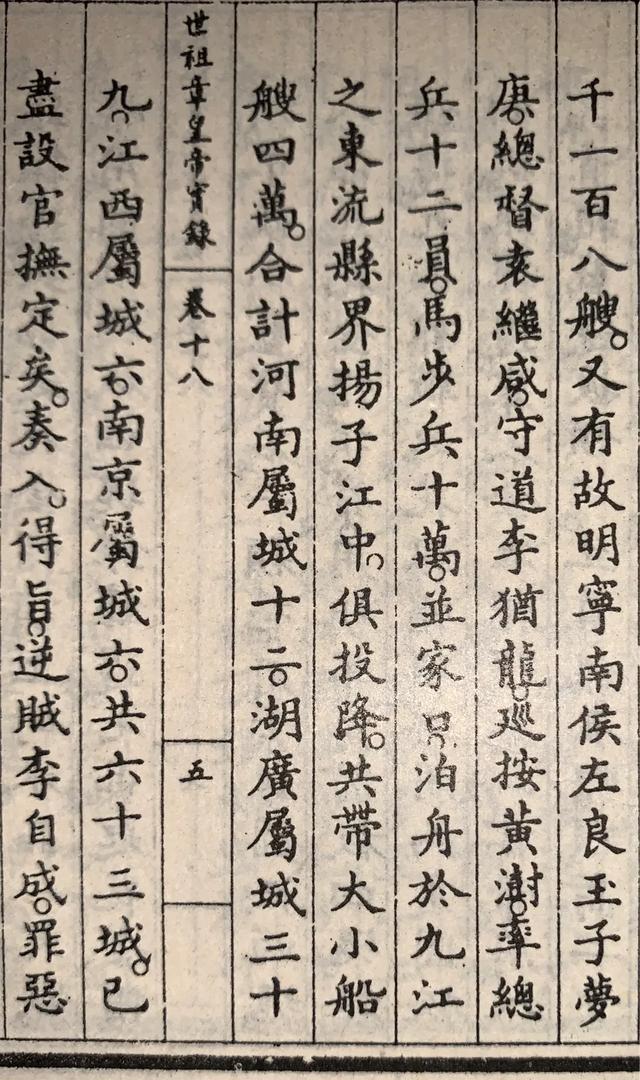 千一百八艘。又有故明寧南侯左良玉子夢
庚。總督袁繼咸。守道李猶龍。巡按黃澍。率總
兵十二員。馬步兵十萬。並家口。泊舟於九江
之東流縣界揚子江中。俱投降。共帶大小船
艘四萬。合計河南屬城十二。湖廣屬城三十
世祖章皇帝實錄 卷十八 五
九。江西屬城六。南京屬城六。共六十三城。已
盡設官撫定矣。奏入。得旨。逆賊李自成。罪惡